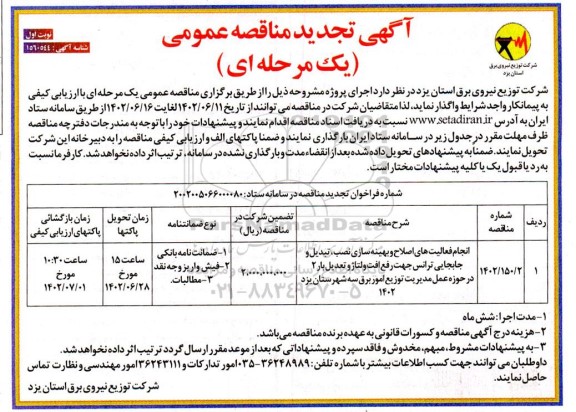 نوبت اول
شناسه آگهی: ۱۵۶۰۵۴۴
آگهی تجدید مناقصه عمومی
(یک مرحله ای)
شرکت توزیع نیروی برق
استان یزد
شرکت توزیع نیروی برق استان یزد در نظر دارد اجرای پروژه مشروحه ذیل را از طریق برگزاری مناقصه عمومی یک مرحله ای با ارزیابی کیفی
به پیمانکار واجد شرایط واگذار نماید. لذا متقاضیان شرکت در مناقصه می توانند از تاریخ ۱۴۰۲/۰۶/۱۱ لغایت ۱۴۰۲/۰۶/۱۶ از طریق سامانه ستاد
ایران به آدرس www.setadiran.ir نسبت به دریافت اسناد مناقصه اقدام نمایند و پیشنهادات خود را با توجه به مندرجات دفترچه مناقصه
ظرف مهلت مقرر در جدول زیر در سامانه ستاد ایران بارگذاری نمایند و ضمنا پاکتهای الف و ارزیابی کیفی مناقصه را به دبیرخانه این شرکت
تحویل نمایند. ضمنا به پیشنهادهای تحویل داده شده بعد از انقضاء مدت و بارگذاری نشده در سامانه، ترتیب اثر داده نخواهد شد. کارفرما نسبت
به رد یا قبول یک یا کلیه پیشنهادات مختار است.
شماره فراخوان تجدید مناقصه در سامانه ستاد: ۲۰۰۲۰۰۵۰۶۶۰۰۰۰۸۰
ردیف شماره مناقصه شرح مناقصه تضمین شرکت در مناقصه (ریال) نوع ضمانتنامه زمان تحویل پاکتها زمان بازگشائی پاکتهای ارزیابی کیفی
۱ ۱۴۰۲/۱۵۰/۲ انجام فعالیت های اصلاح و بهینه سازی نصب، تبدیل و جابجایی ترانس جهت رفع افت ولتاژ و تعدیل بار ۲ در حوزه عمل مدیریت توزیع امور برق سه شهرستان یزد ۱۴۰۲ ۲,۰۰۰,۰۰۰,۰۰۰ ۱-ضمانت نامه بانکی ۲-فیش واریز وجه نقد ۳-مطالبات. ساعت ۱۵ مورخ ۱۴۰۲/۰۶/۲۸ ساعت ۱۰:۳۰ مورخ ۱۴۰۲/۰۷/۰۱
۰۲۱-۸۸۳۴۹۶۷۰-۵
۱-مدت اجرا: شش ماه
۲-هزینه درج آگهی مناقصه و کسورات قانونی به عهده برنده مناقصه می باشد.
۳-به پیشنهادات مشروط، مبهم، مخدوش و فاقد سپرده و پیشنهاداتی که بعد از موعد مقرر ارسال گردد ترتیب اثر داده نخواهد شد.
داوطلبان می توانند جهت کسب اطلاعات بیشتر با شماره تلفن: ۳۶۲۴۸۹۸۹-۰۳۵ امور تدارکات و ۳۶۲۴۳۱۱۱ امور مهندسی و نظارت تماس
حاصل نمایند.
شرکت توزیع نیروی برق استان یزد